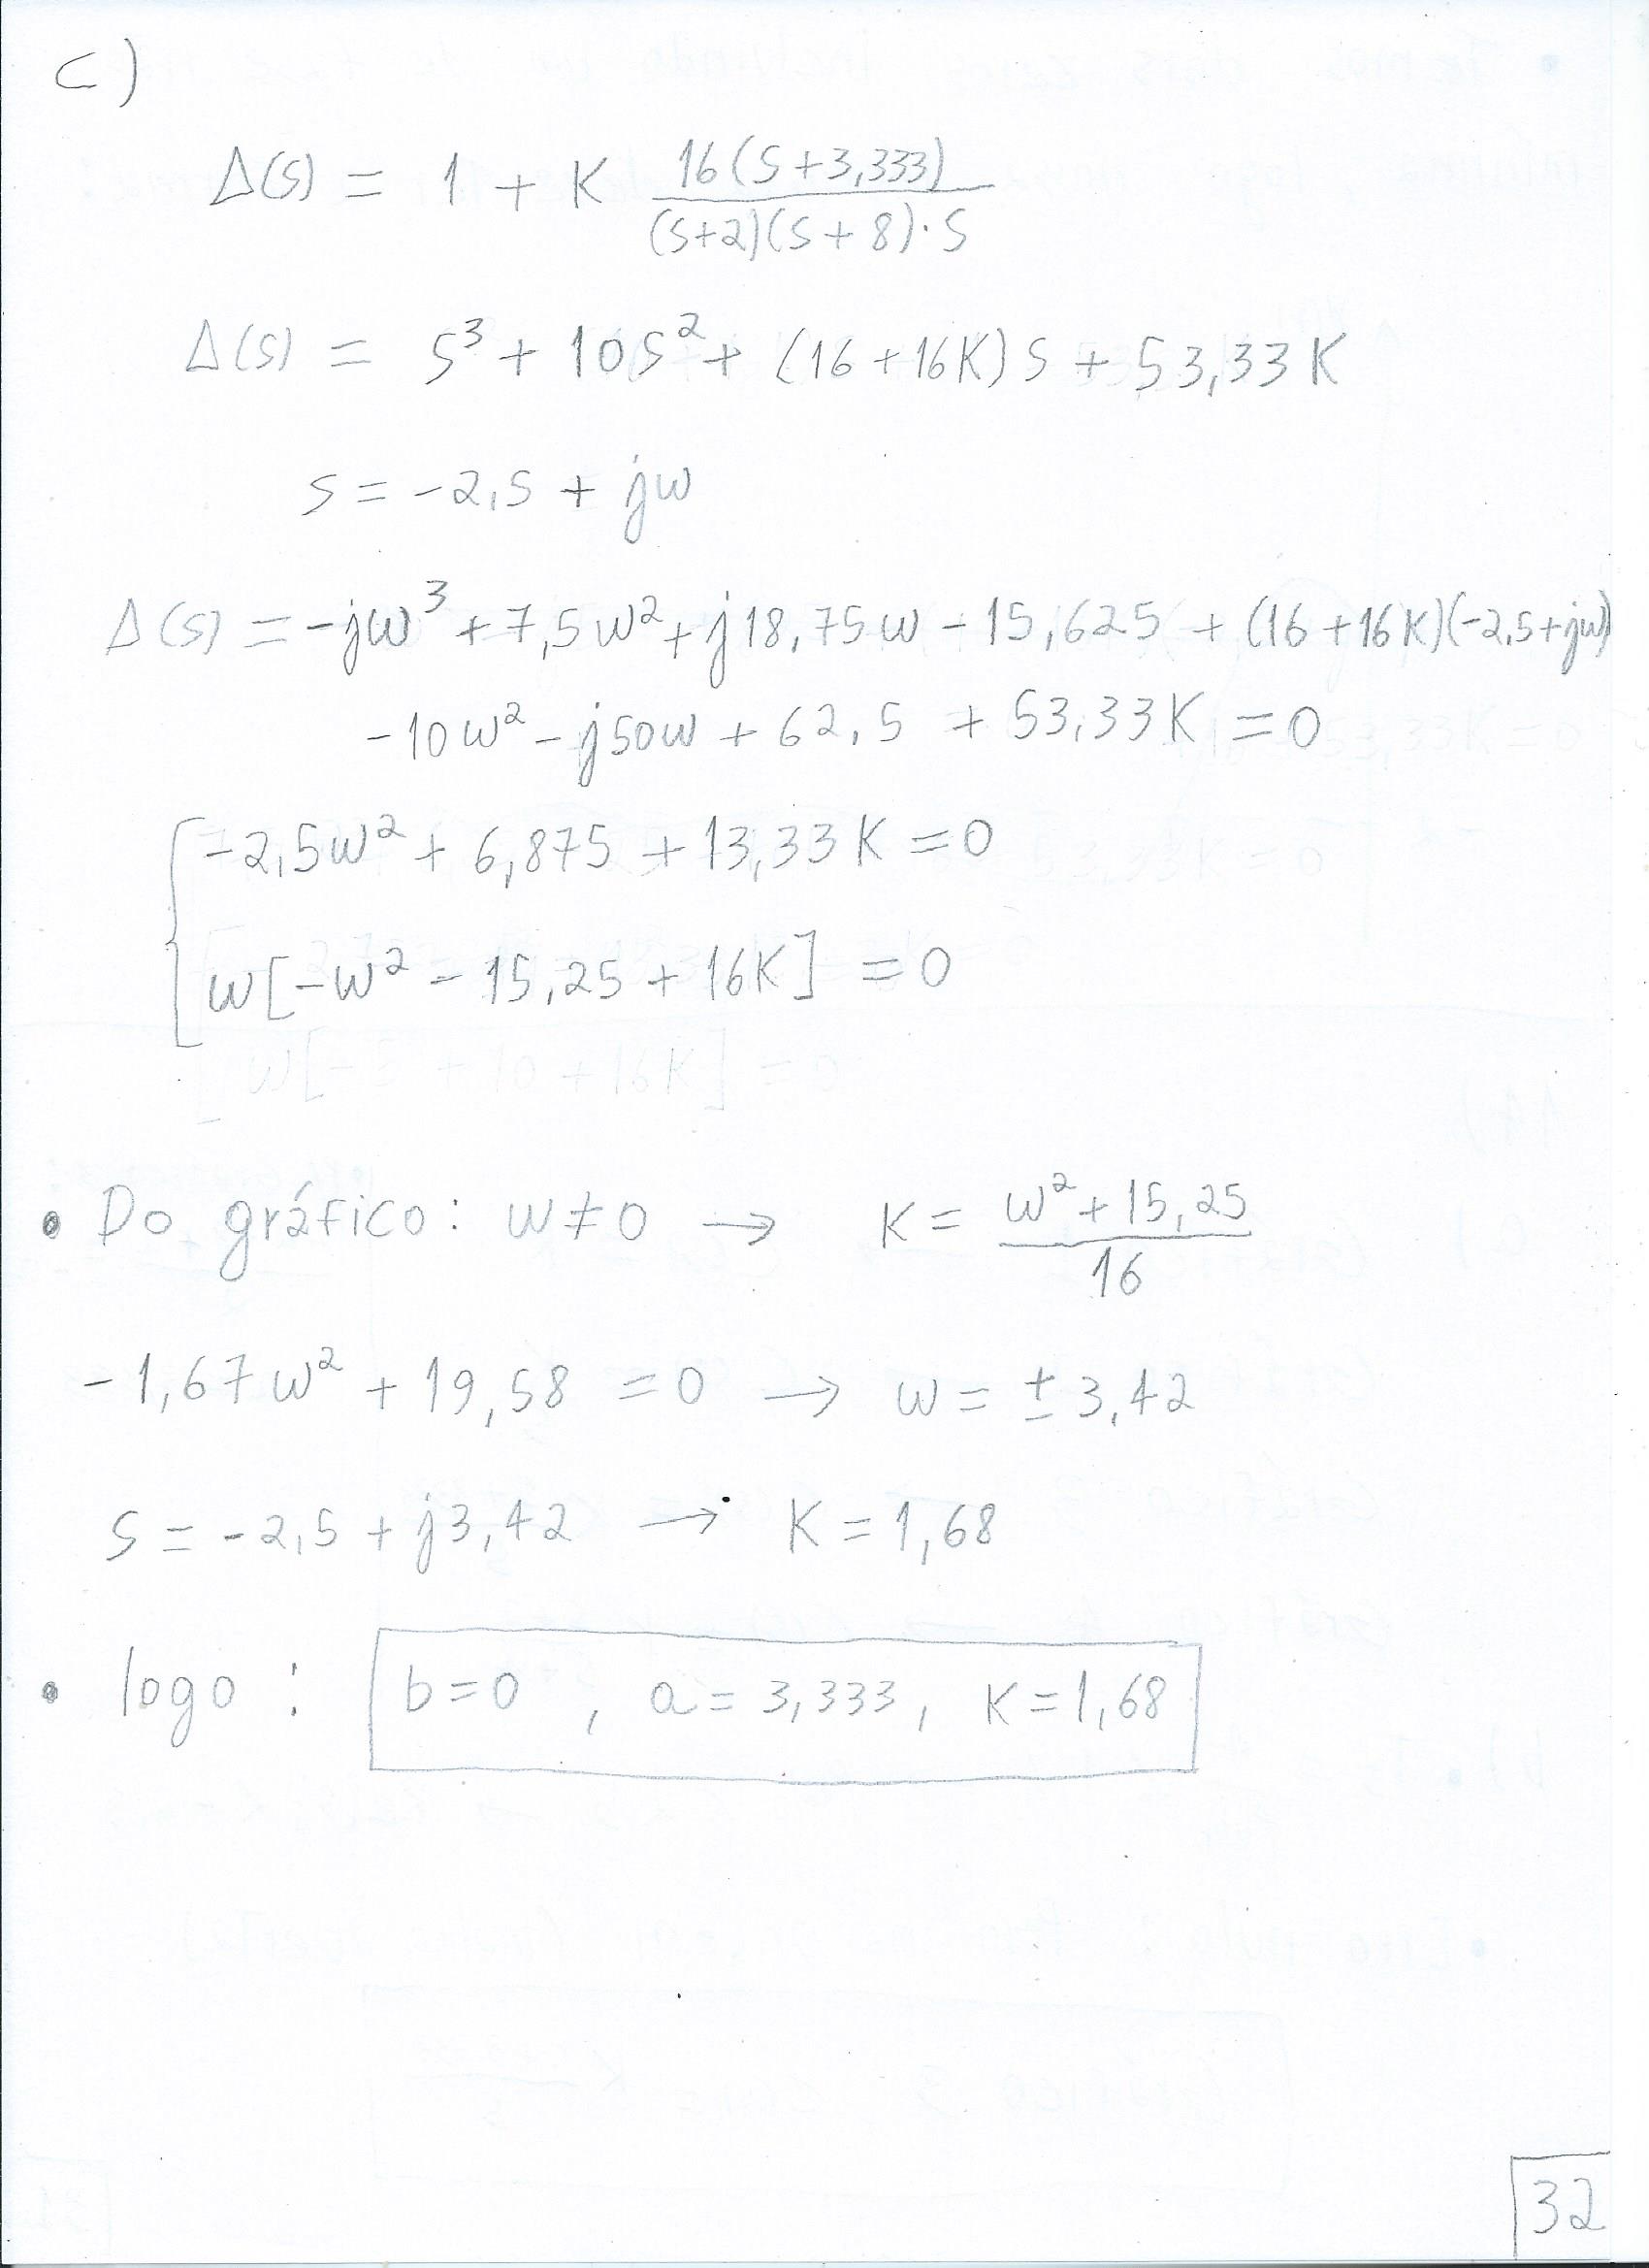 c)
Δ(s) = 1 + K 16(s+3,333) / (s+2)(s+8)·s
Δ(s) = s³ + 10s² + (16+16K)s + 53,33K
s = -2,5 + jw
Δ(s) = -jw³ + 7,5w² + j18,75w - 15,625 + (16+16K)(-2,5+jw)
-10w² - j50w + 62,5 + 53,33K = 0
{ -2,5w² + 6,875 + 13,33K = 0
w[-w² - 15,25 + 16K] = 0
• Do gráfico: w≠0 → K = w² + 15,25 / 16
-1,67w² + 19,58 = 0 → w = ± 3,42
s = -2,5 + j3,42 → K = 1,68
• logo: b=0, a=3,333, K=1,68
32